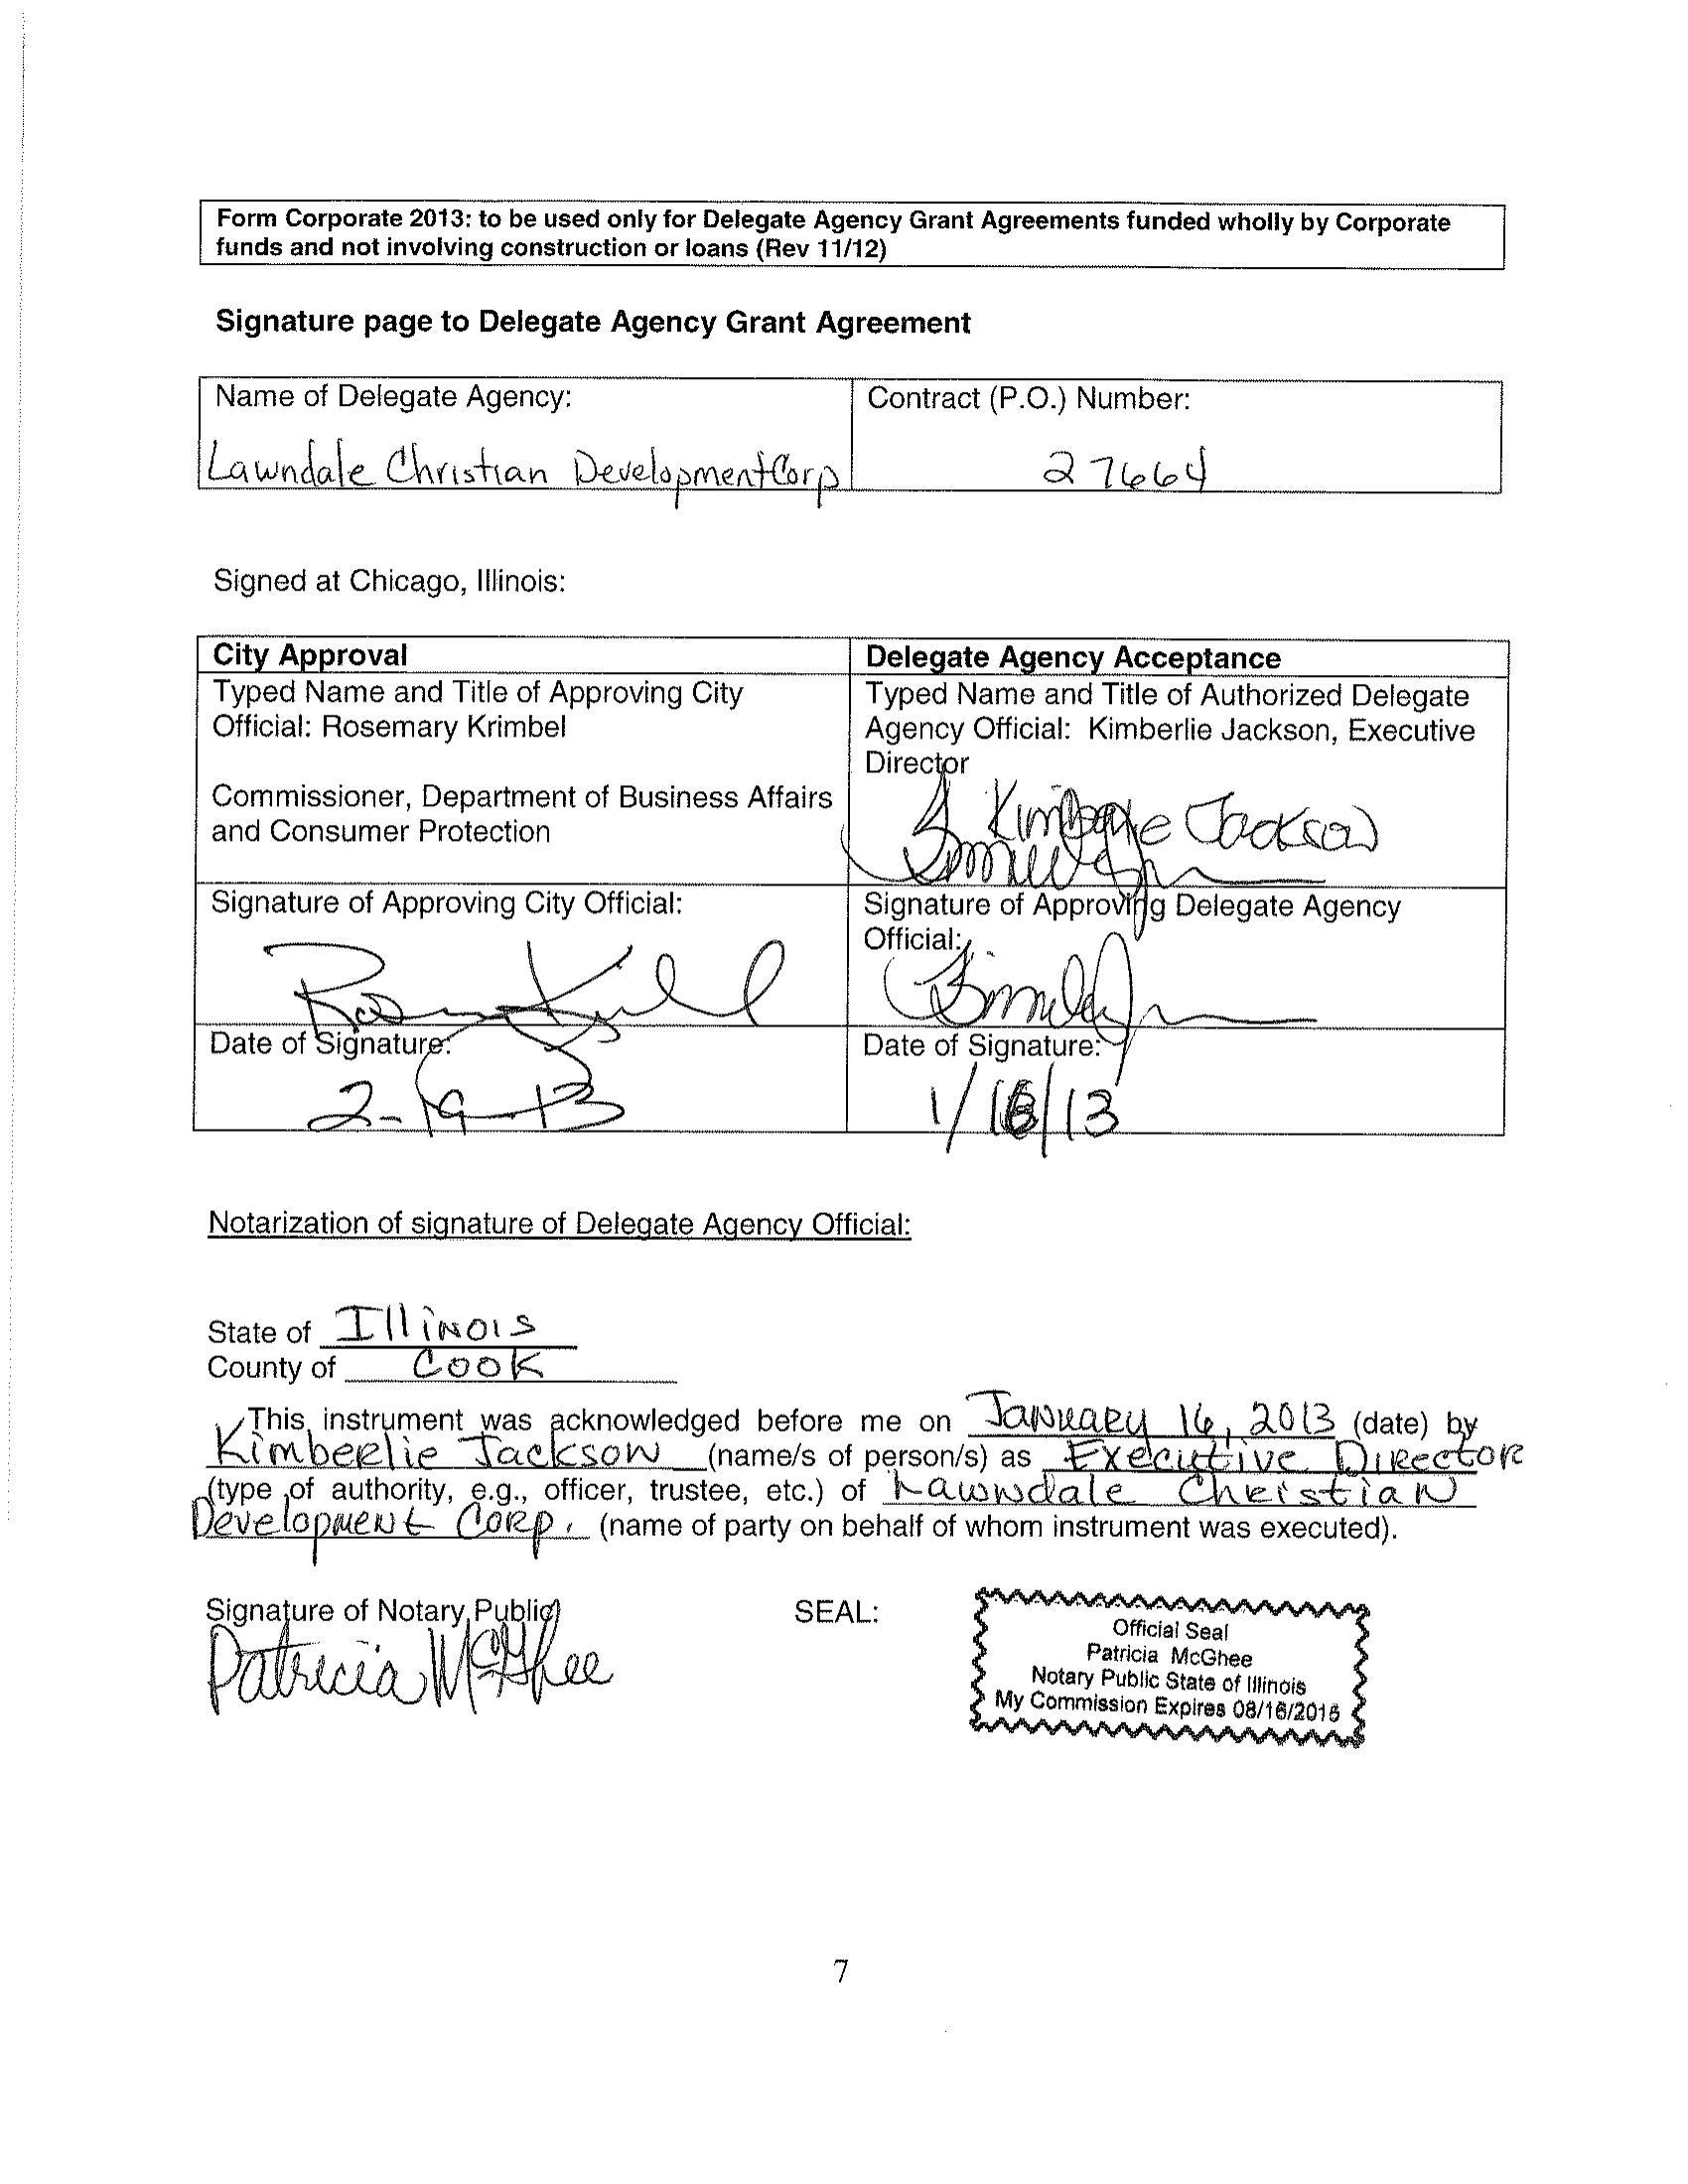 Form Corporate 2013: to be used only for Delegate Agency Grant Agreements funded wholly by Corporate
funds and not involving construction or loans (Rev 11/12)
Signature page to Delegate Agency Grant Agreement
Name of Delegate Agency:
Lawndale Christian Development Corp
Contract (P.O.) Number:
27664
Signed at Chicago, Illinois:
City Approval
Typed Name and Title of Approving City
Official: Rosemary Krimbel
Commissioner, Department of Business Affairs
and Consumer Protection
Delegate Agency Acceptance
Typed Name and Title of Authorized Delegate
Agency Official: Kimberlie Jackson, Executive
Director
Kimberlie Jackson
Signature of Approving City Official:
Signature of Approving Delegate Agency
Official:
Date of Signature:
2-19-13
Date of Signature:
1/16/13
Notarization of signature of Delegate Agency Official:
State of Illinois
County of Cook
This instrument was acknowledged before me on January 16, 2013 (date) by
Kimberlie Jackson (name/s of person/s) as Executive Director
(type of authority, e.g., officer, trustee, etc.) of Lawndale Christian
Development Corp. (name of party on behalf of whom instrument was executed).
Signature of Notary Public
Patricia McGhee
SEAL:
Official Seal
Patricia McGhee
Notary Public State of Illinois
My Commission Expires 08/16/2015
7